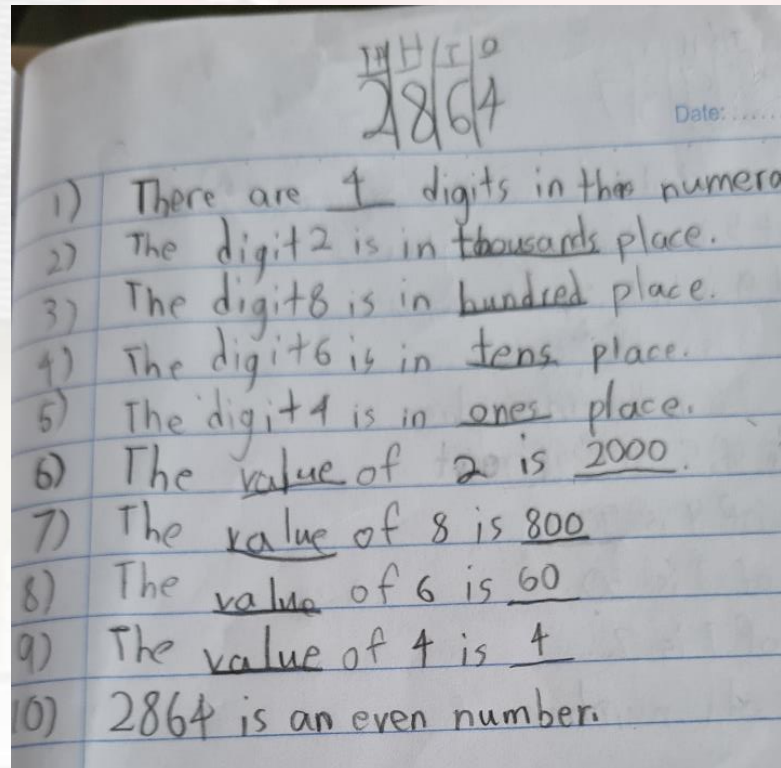 TH H T O
2 8 6 4
Date:......
1) There are 4 digits in this numera
2) The digit 2 is in thousands place.
3) The digit 8 is in hundred place.
4) The digit 6 is in tens place.
5) The digit 4 is in ones place.
6) The value of 2 is 2000.
7) The value of 8 is 800
8) The value of 6 is 60
9) The value of 4 is 4
10) 2864 is an even number.